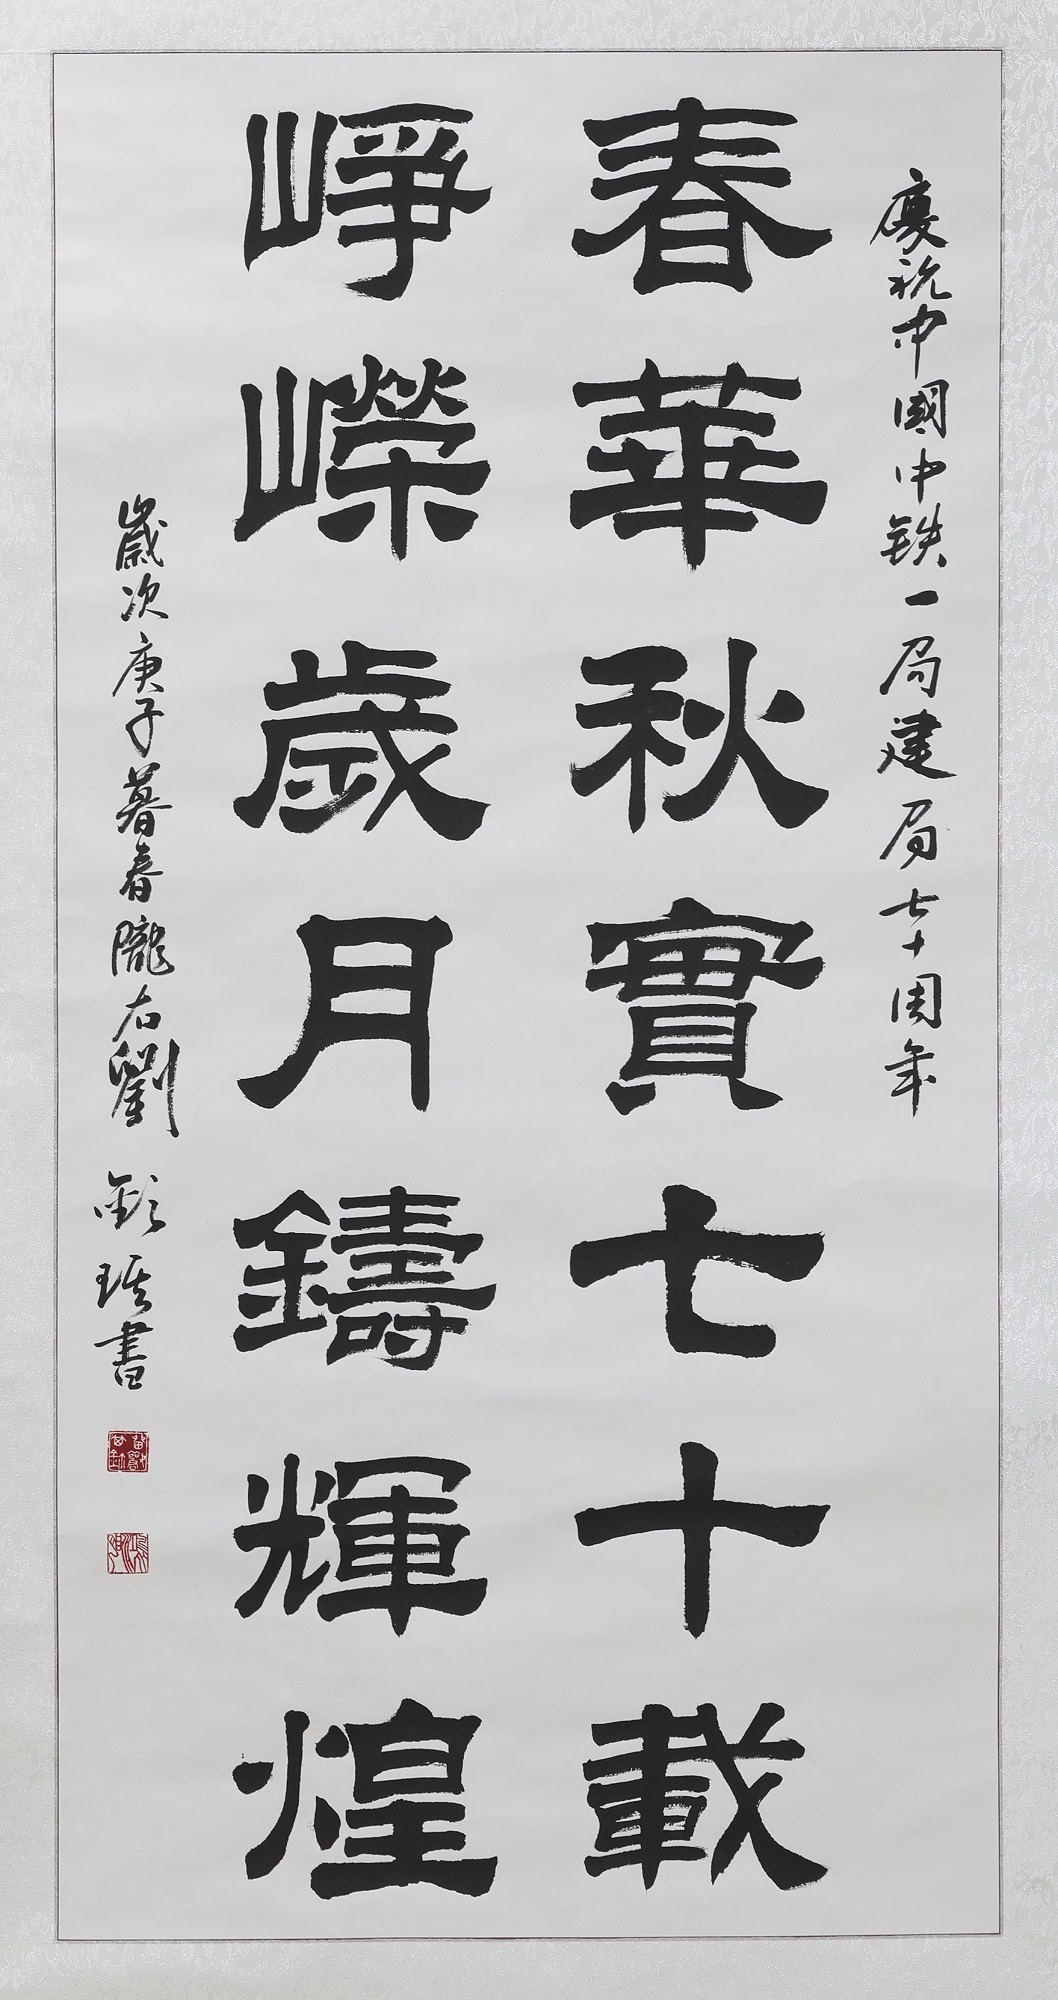 慶祝中國中铁一局建局七十周年
春華秋實七十載
崢嶸歲月鑄輝煌
歲次庚子暮春隴右劉
書